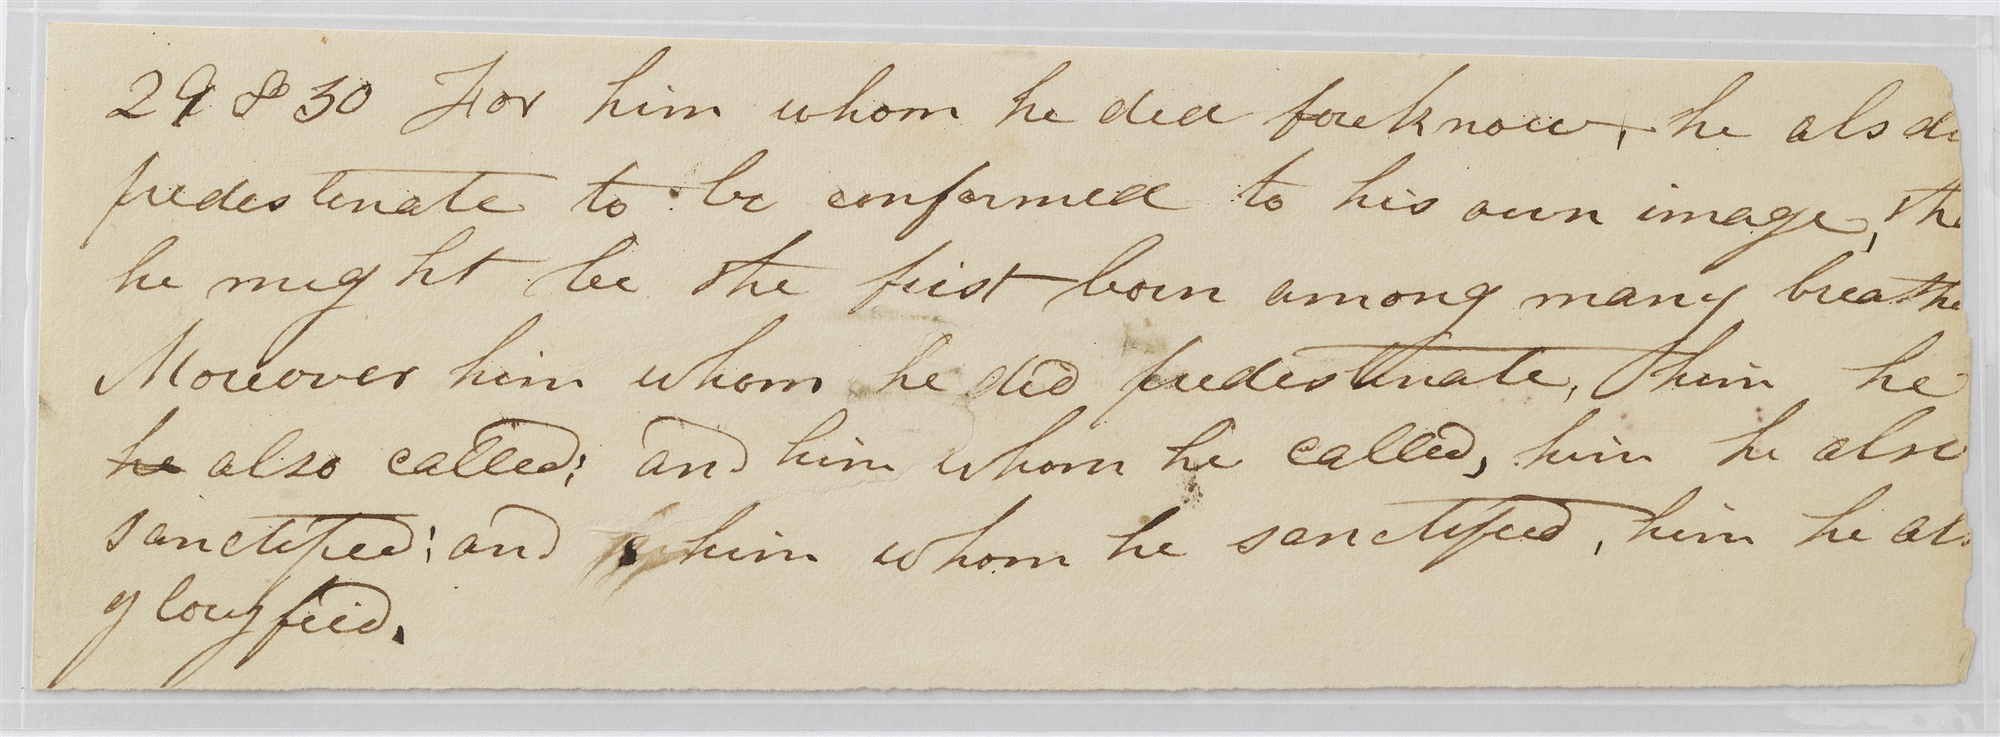 29 & 30 For him whom he did foreknow, he also di
predestinate to be conformed to his own image, tha
he might be the first born among many breathe
Moreover him whom he did predestinate, him he
he also called; and him whom he called, him he also
sanctified; and him whom he sanctified, him he als
gloryfied.